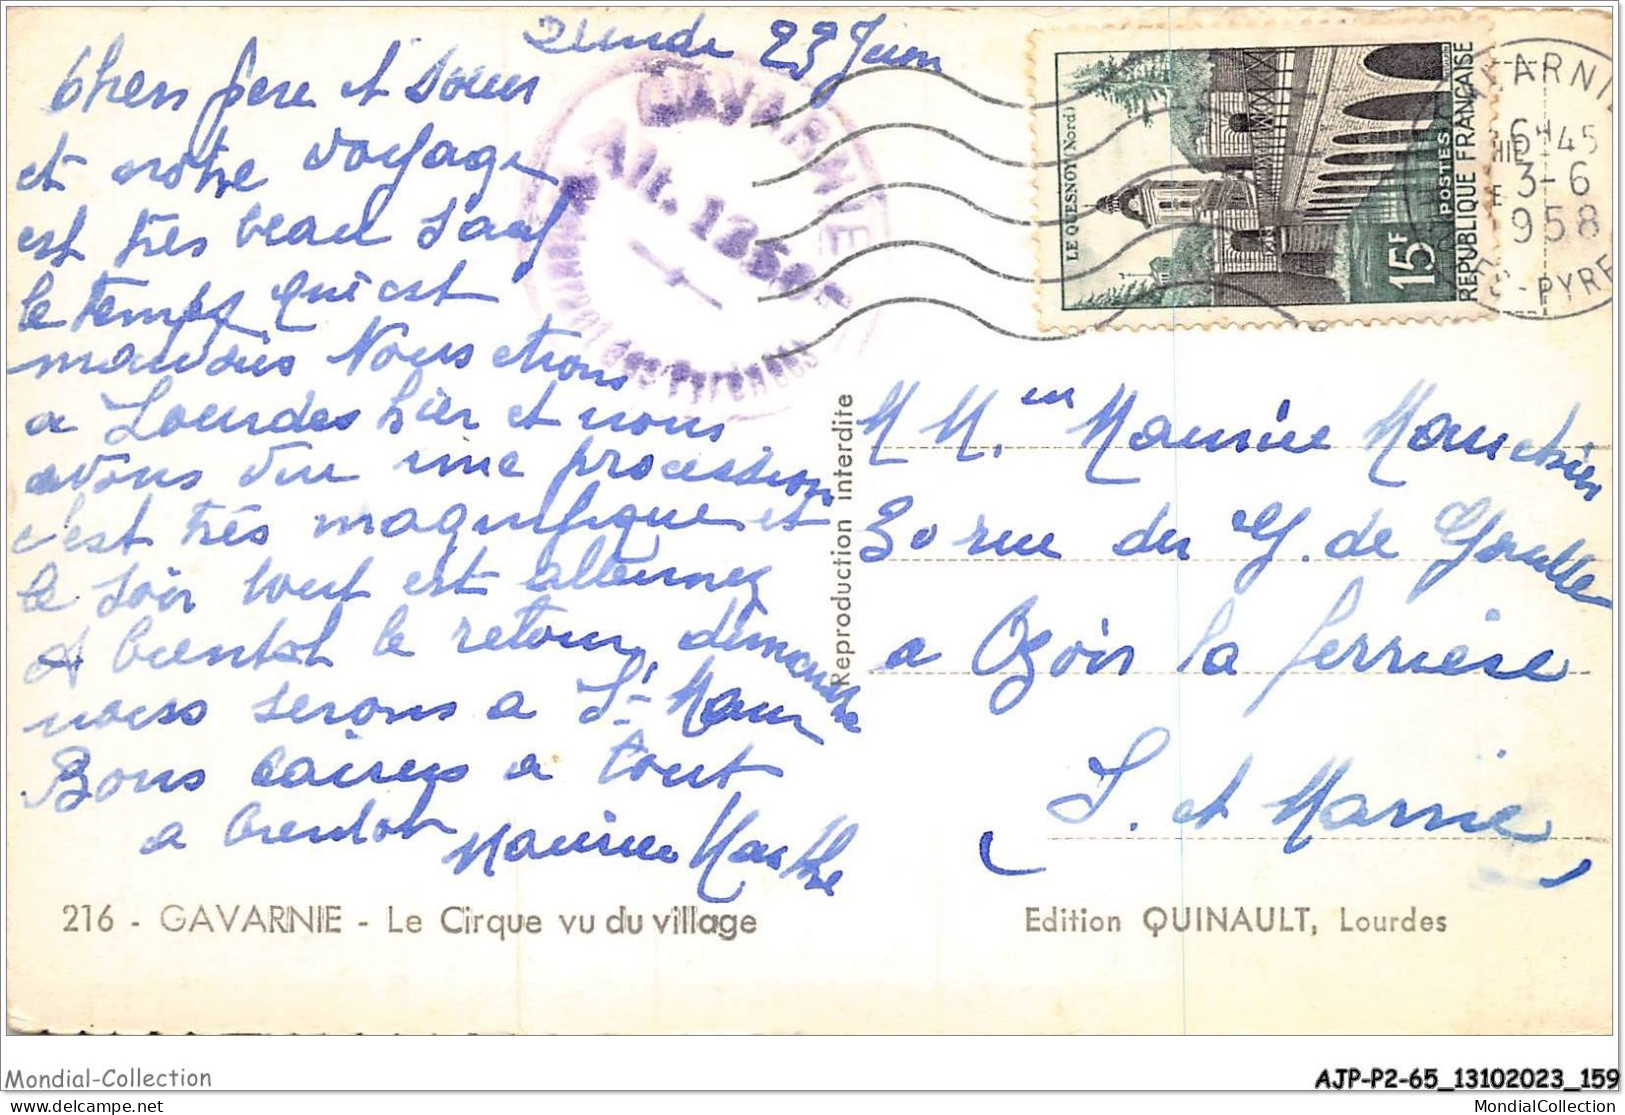 Lundi 23 Juin
Chers frere et soeur
et notre voyage
est très beau sauf
le temps qui est
mauvais Nous etions
a Lourdes hier et nous
avons vu une procession
c'est très magnifique et
le soir tout est allumez
A bientot le retour dimanche
nous serons a St Maur
Bons baisers a tout
a bientot Maurice Marthe
GAVARNIE
Alt. 1350
des Pyrénées
LE QUESNOY (Nord)
POSTES
15F
REPUBLIQUE FRANÇAISE
GAVARNIE
6H45
3-6
958
PYR
Reproduction interdite
M M. en Maurice Mauchien
30 rue du G. de Gaulle
a Ozoir la ferriere
S. et Marne
216 - GAVARNIE - Le Cirque vu du village
Edition QUINAULT, Lourdes
Mondial-Collection
AJP-P2-65_13102023_159
delcampe.net
MondialCollection